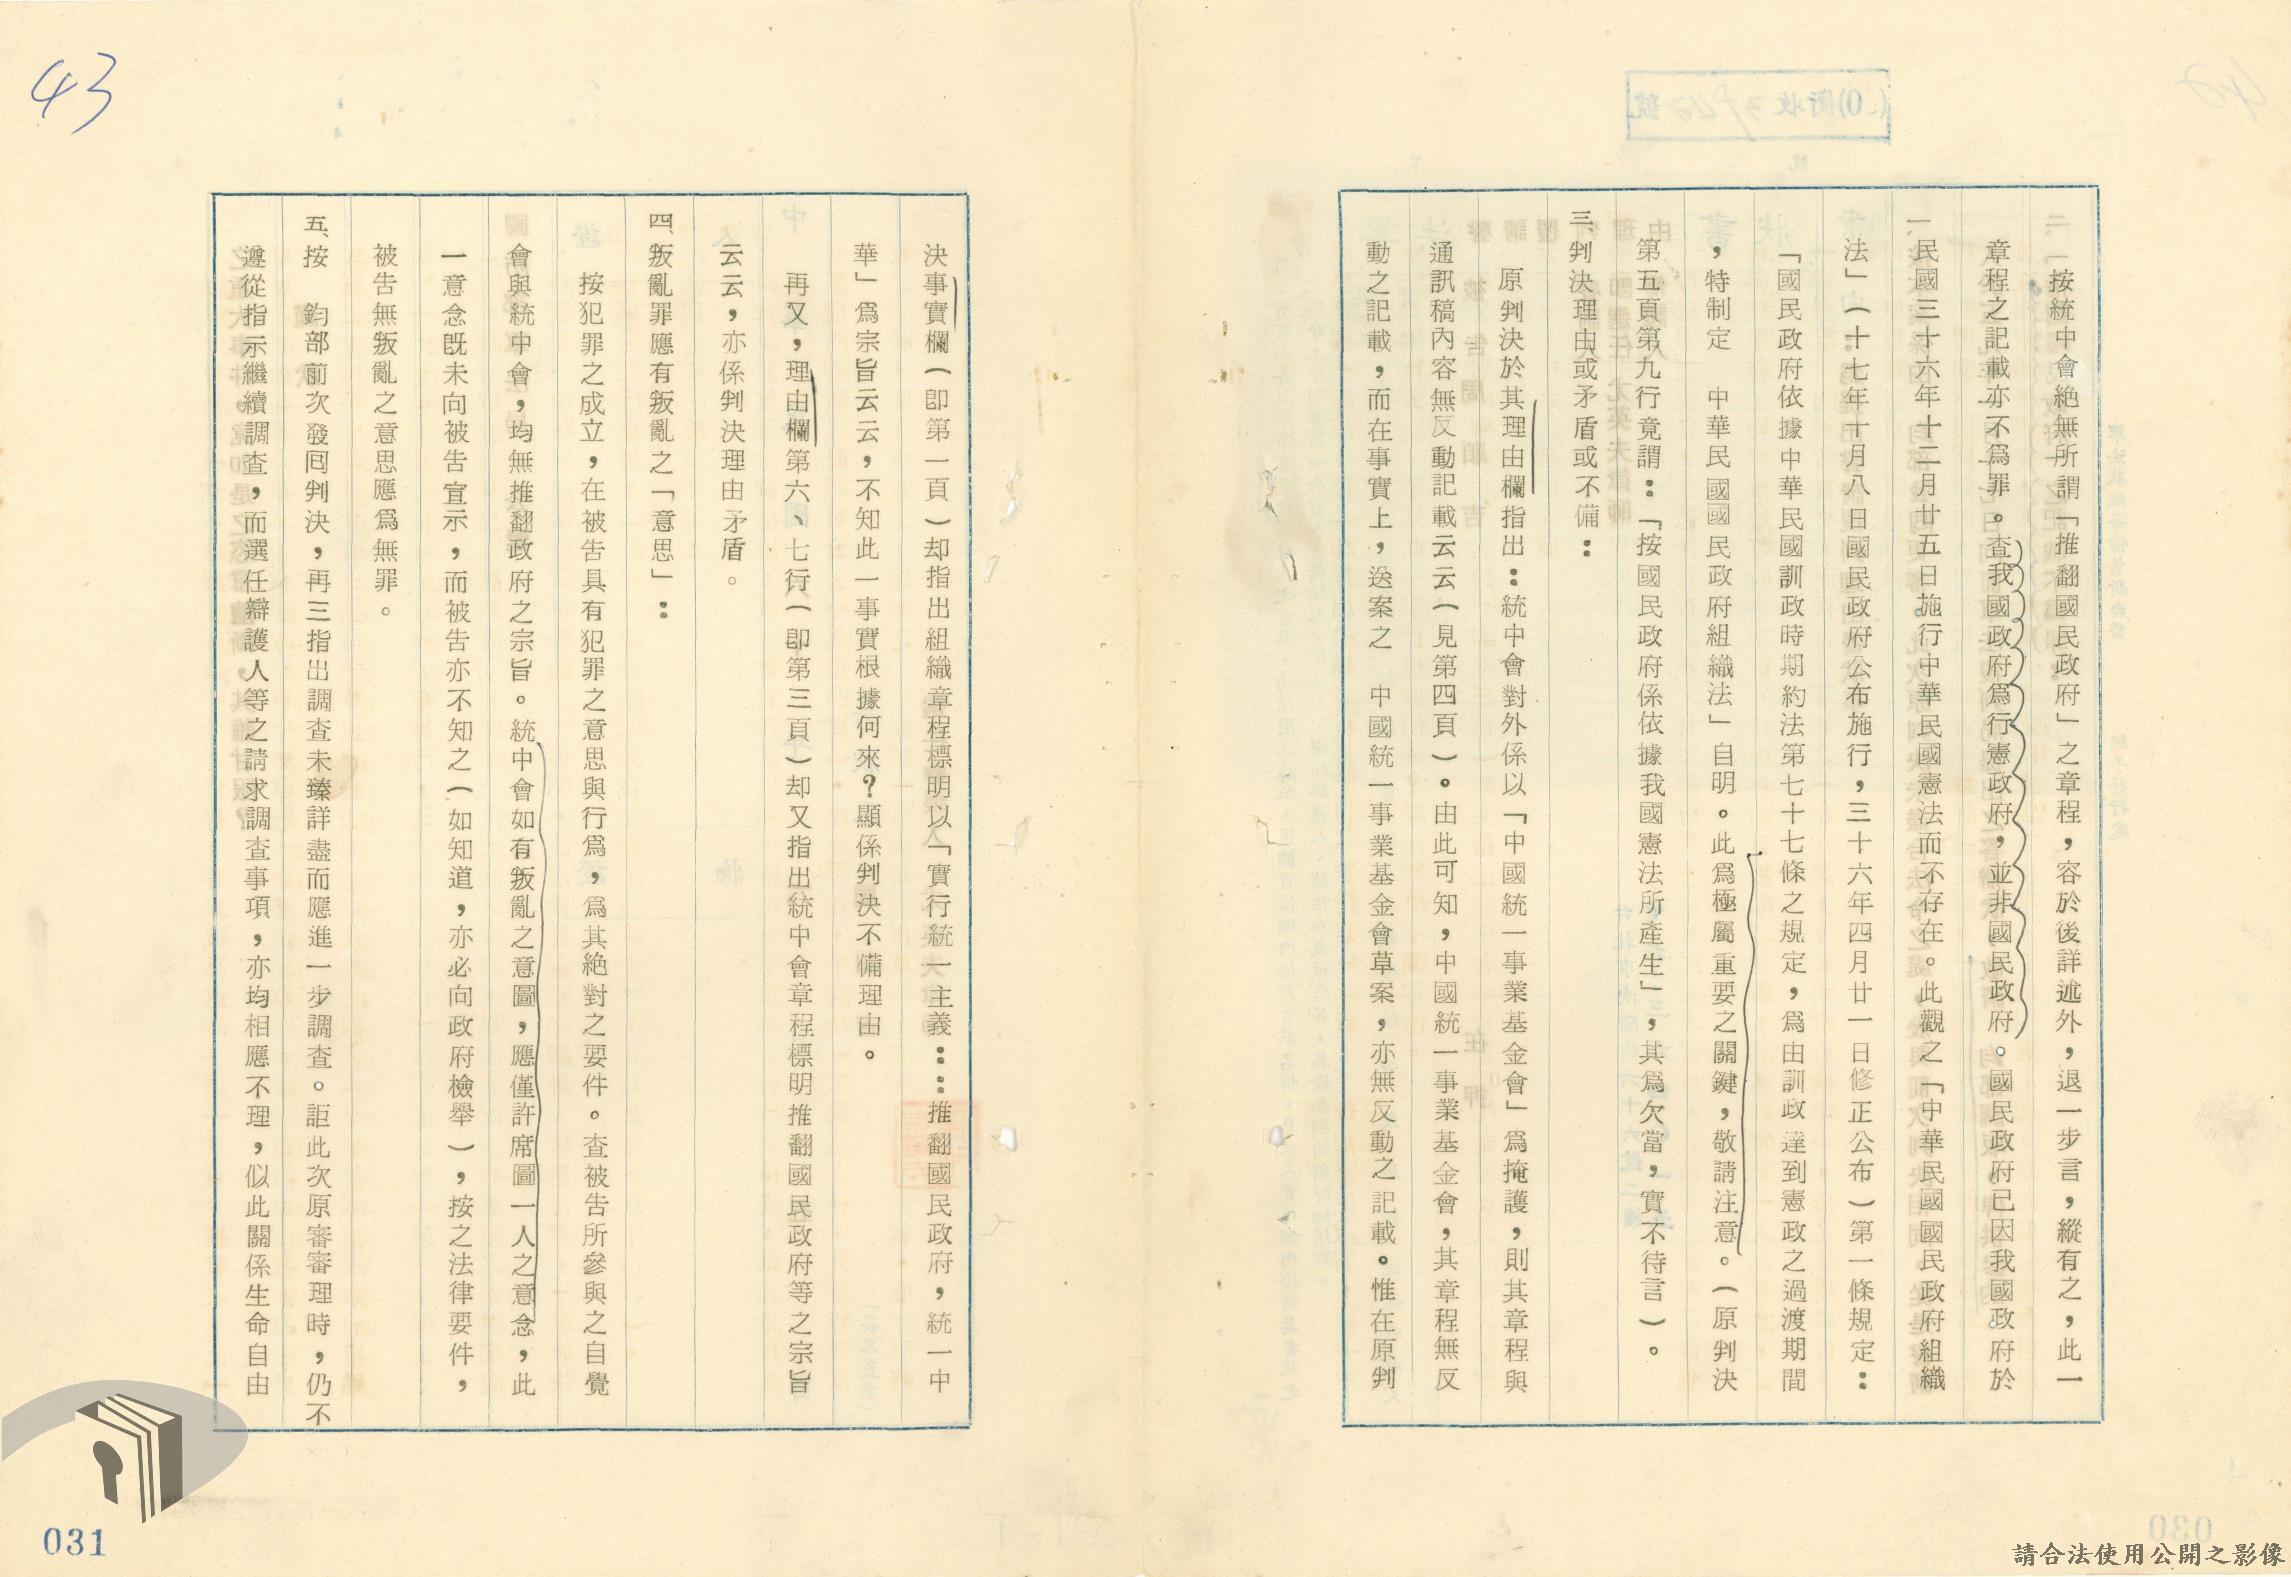 43
按統中會絕無所謂「推翻國民政府」之章程，容於後詳述外，退一步言，縱有之，此一
章程之記載亦不爲罪。查我國政府爲行憲政府，並非國民政府。國民政府已因我國政府於
民國三十六年十二月廿五日施行中華民國憲法而不存在。此觀之「中華民國國民政府組織
法」（十七年十月八日國民政府公布施行，三十六年四月廿一日修正公布）第一條規定：
「國民政府依據中華民國訓政時期約法第七十七條之規定，爲由訓政達到憲政之過渡期間
，特制定　中華民國國民政府組織法」自明。此爲極屬重要之關鍵，敬請注意。（原判決
第五頁第九行竟謂：「按國民政府係依據我國憲法所產生」，其爲欠當，實不待言）。
三、判決理由或矛盾或不備：
原判決於其理由欄指出：統中會對外係以「中國統一事業基金會」爲掩護，則其章程與
通訊稿內容無反動記載云云（見第四頁）。由此可知，中國統一事業基金會，其章程無反
動之記載，而在事實上，送案之　中國統一事業基金會草案，亦無反動之記載。惟在原判
決事實欄（卽第一頁）却指出組織章程標明以「實行統一主義：：推翻國民政府，統一中
華」爲宗旨云云，不知此一事實根據何來？顯係判決不備理由。
再又，理由欄第六、七行（卽第三頁）却又指出統中會章程標明推翻國民政府等之宗旨
云云，亦係判決理由矛盾。
四、叛亂罪應有叛亂之「意思」：
按犯罪之成立，在被告具有犯罪之意思與行爲，爲其絕對之要件。查被告所參與之自覺
會與統中會，均無推翻政府之宗旨。統中會如有叛亂之意圖，應僅許席圖一人之意念，此
一意念旣未向被告宣示，而被告亦不知之（如知道，亦必向政府檢舉），按之法律要件，
被告無叛亂之意思應爲無罪。
五、按　鈞部前次發囘判決，再三指出調查未臻詳盡而應進一步調查。詎此次原審審理時，仍不
遵從指示繼續調查，而選任辯護人等之請求調查事項，亦均相應不理，似此關係生命自由
031
請合法使用公開之影像